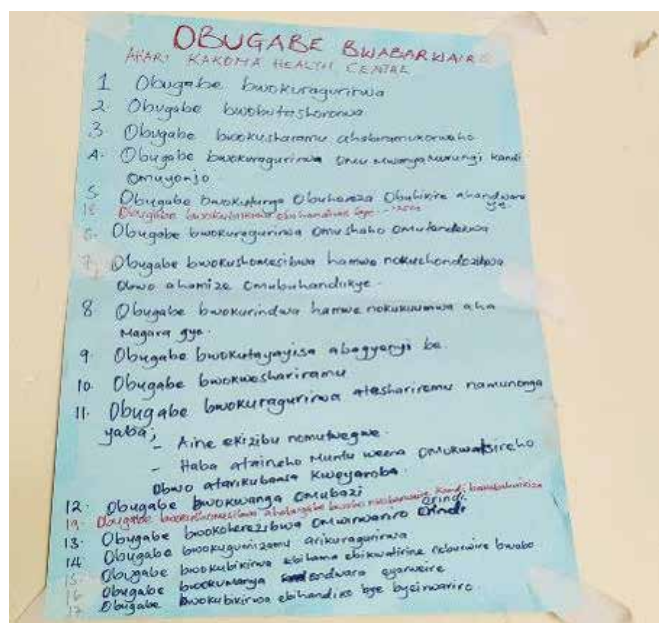 OBUGABE BWABARWAIRE
AHARI KAKOMA HEALTH CENTRE
1 Obugabe bwokuragurirwa
2. Obugabe bwobutashororwa
3. Obugabe bwokusharamu ahabiramukorwaho
4. Obugabe bwokuragurirwa omu mwanya murungi kandi
omuyonjo.
5. Obugabe bwokutunga Obuhereza Obuhikire ahandwara
ye.
18. Obugabe
6. Obugabe bwokuragurirwa omushaho omutendekwa
7. Obugabe bwokushomesibwa hamwe nokuhondozibwa
Obwo ahamize omubuhandiikye.
8 Obugabe bwokurindwa hamwe nokukuumwa aha
Magara gye.
9. Obugabe bwokutayayisa abagyenyi be.
10. Obugabe bwokweshariramu
11. Obugabe bwokuragurirwa atashariremu namunonga
yaba;
- Aine ekizibu nomutwegwe.
- Haba ataineho Muntu weena omukwatsireho
Obwo atarikubaasa kweyaroba.
12. Obugabe bwokwanga omubazi
19. Obugabe
13. Obugabe bwokoherezibwa omwirwariro erindi
14 Obugabe bwokugumizamu arikuragurirwa
15. Obugabe bwokubikirwa ebihama ebikwatirine noburwire bwabo
16 Obugabe bwokumanya endwara eyarweire
17 Obugabe bwokubikirwa ebihandiko bye byeirwariro.